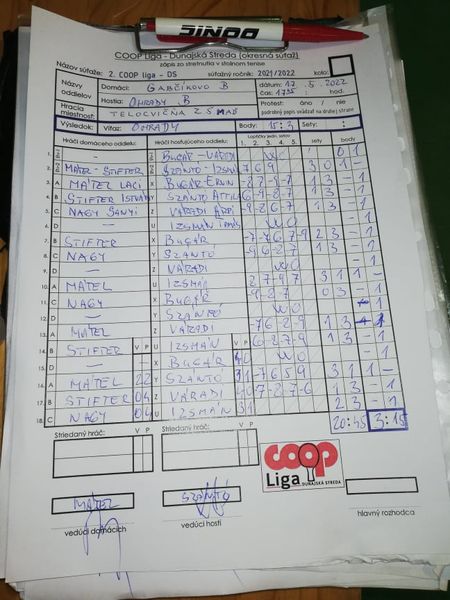 SINOO
COOP Liga - Dunajská Streda (okresná súťaž)
zápis zo stretnutia v stolnom tenise
Názov súťaže: 2. COOP liga - DS súťažný ročník: 2021/2022 kolo:
Názvy oddielov Domáci: GABČÍKOVO B dátum: 17. 5. 2022
Hostia: OHRADY B čas: 17 hod.
Hracia miestnosť: TELOCVIČŇA ZŠ MAĎ Protest: áno / nie
podrobný popis uviádzať na druhej strane
Výsledok: Víťaz: OHRADY Body: 15:3 Sety: :
Hráči domáceho oddielu: Hráči hosťujúceho oddielu: Loptičky jedn. setov sety body
1. 2. 3. 4. 5.
1. — BUGÁR - VÁRADI WO 0 1
2. MATEL - STIFTER SZANTÓ - IZSMÁN 7 6 9 3 0 1 -
3. A MATEL LACI X BUGÁR ERVIN 1 3 - 1
4. B STIFTER ISTVÁN Y SZANTÓ ATTILA 1 3 - 1
5. C NAGY SANYI Z VÁRADI ÁRPI 1 3 - 1
6. D — U IZSMÁN WO - 1
7. B STIFTER X BUGÁR -7 -8 6 -7 -9 2 3 - 1
8. C NAGY Y SZANTÓ 1 3 - 1
9. D — Z VÁRADI WO - 1
10. A MATEL U IZSMÁN 3 1 1 -
11. C NAGY X BUGÁR 0 3 - 1
12. D — Y SZANTÓ WO - 1
13. A MATEL Z VÁRADI -7 6 -8 -9 1 3 - 1
14. B STIFTER V P U IZSMÁN V P 1 3 - 1
15. D — X BUGÁR 4 0 WO - 1
16. A MATEL 2 2 Y SZANTÓ 3 1 3 1 1 -
17. B STIFTER 0 4 Z VÁRADI 4 0 1 3 - 1
18. C NAGY 0 4 U IZSMÁN 3 1 2 3 - 1
20:45 3:15
Striedaný hráč: V P Striedaný hráč: V P
COOP
Liga DUNAJSKÁ STREDA
MATEL SZANTÓ
vedúci domácich vedúci hostí hlavný rozhodca